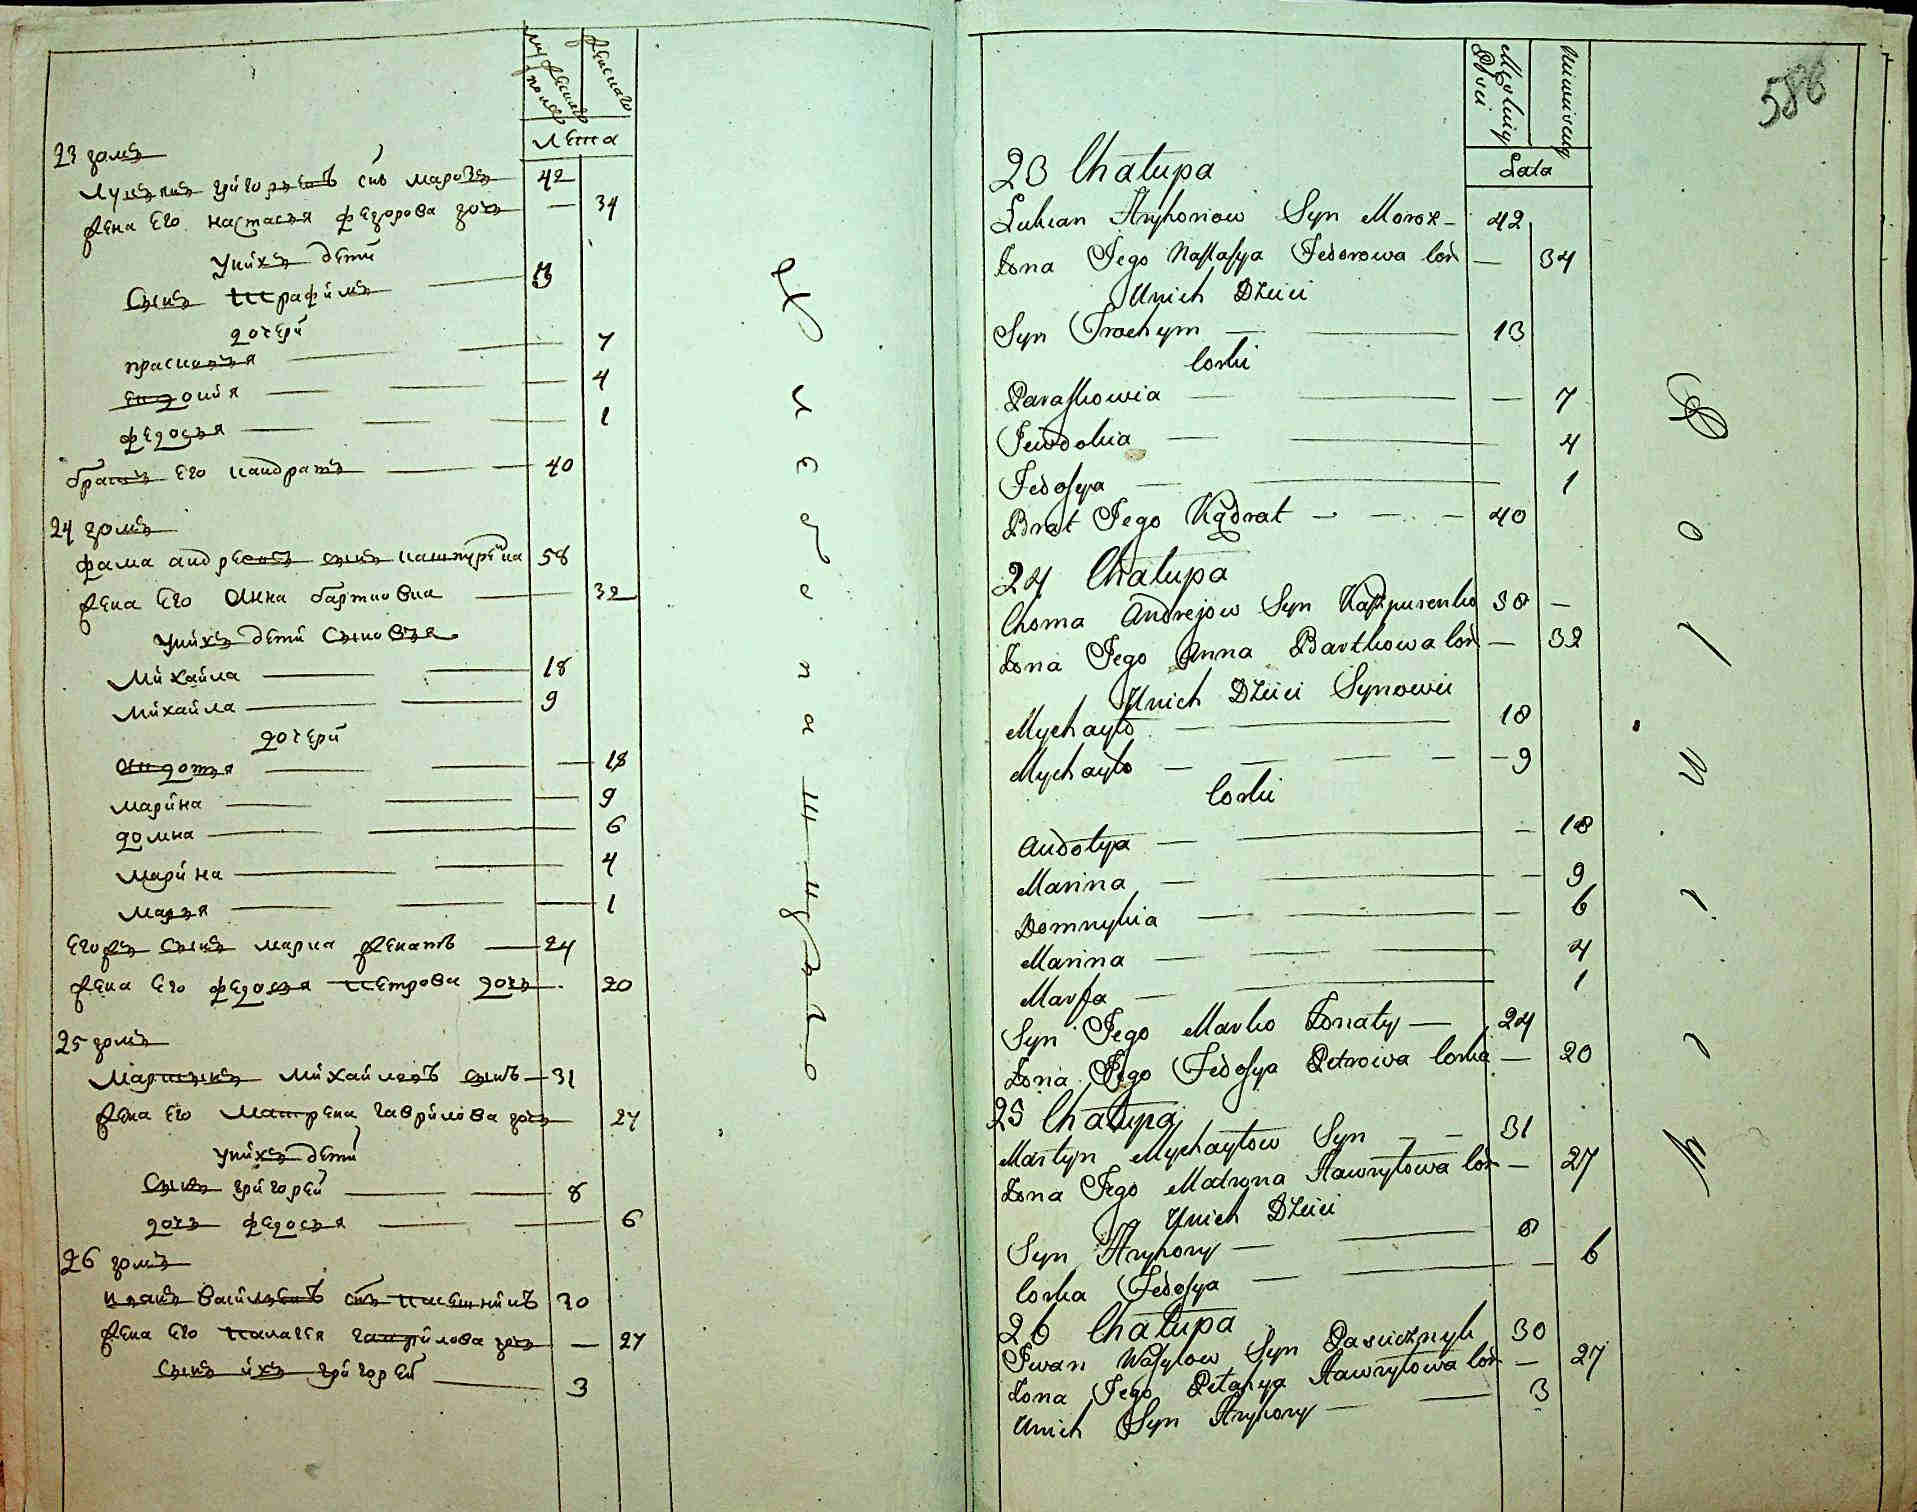 мужеска полу
женскаго
лета
23 домъ
Лукьянъ григорьевъ снъ марозъ 42
жена его настасья федорова дочь — 34
у нихъ дети
Сынъ трафимъ 13
дочери
прасковья 7
евдокия 4
федосья 1
братъ его кандратъ 40
24 домъ
фама андреевъ сынъ кашпуренка 58
жена его анна барткова 32
у нихъ дети сыновья
михайла 18
михайла 9
дочери
авдотья 18
марина 9
домна 6
марина 4
марья 1
его сынъ марка женатъ 24
жена его федосья петрова дочь 20
25 домъ
Мартынъ михайловъ сынъ 31
жена его матрена гаврилова дочь 27
у нихъ дети
Сынъ григорей 8
дочь федосья 6
26 домъ
иванъ васильевъ снъ пасешникъ 30
жена его палагея гаврилова дочь — 27
Сынъ ихъ григорей 3
586
Męskiey Płci
Niewieściey
Lata
23 Chałupa
Lukian Hryhoriow Syn Moroz 42
Żona Jego Nastasya Fedorowa Cor — 34
U nich Dzieci
Syn Trochym 13
Corki
Paraskowia — 7
Jewdokia 4
Fedosya 1
Brat Jego Kądrat 40
24 Chałupa
Choma Andrejow Syn Kaszpurenko 58 —
Żona Jego Anna Bartkowa Cor — 32
U nich Dzieci Synowie
Mychayło 18
Mychayło 9
Corki
Audotya — 18
Marina — 9
Domnykia — 6
Marina 4
Marfa 1
Syn Jego Marko Żonaty 24
Żona Jego Fedosya Petrowa Corka — 20
25 Chałupa
Martyn Mychayłow Syn 31
Żona Jego Matrona Hawryłowa Cor — 27
U nich Dzieci
Syn Hryhory 8
Corka Fedosya — 6
26 Chałupa
Iwan Wasylow Syn Pasicznyk 30
Żona Jego Pelahya Hawryłowa Cor — 27
U nich Syn Hryhory 3